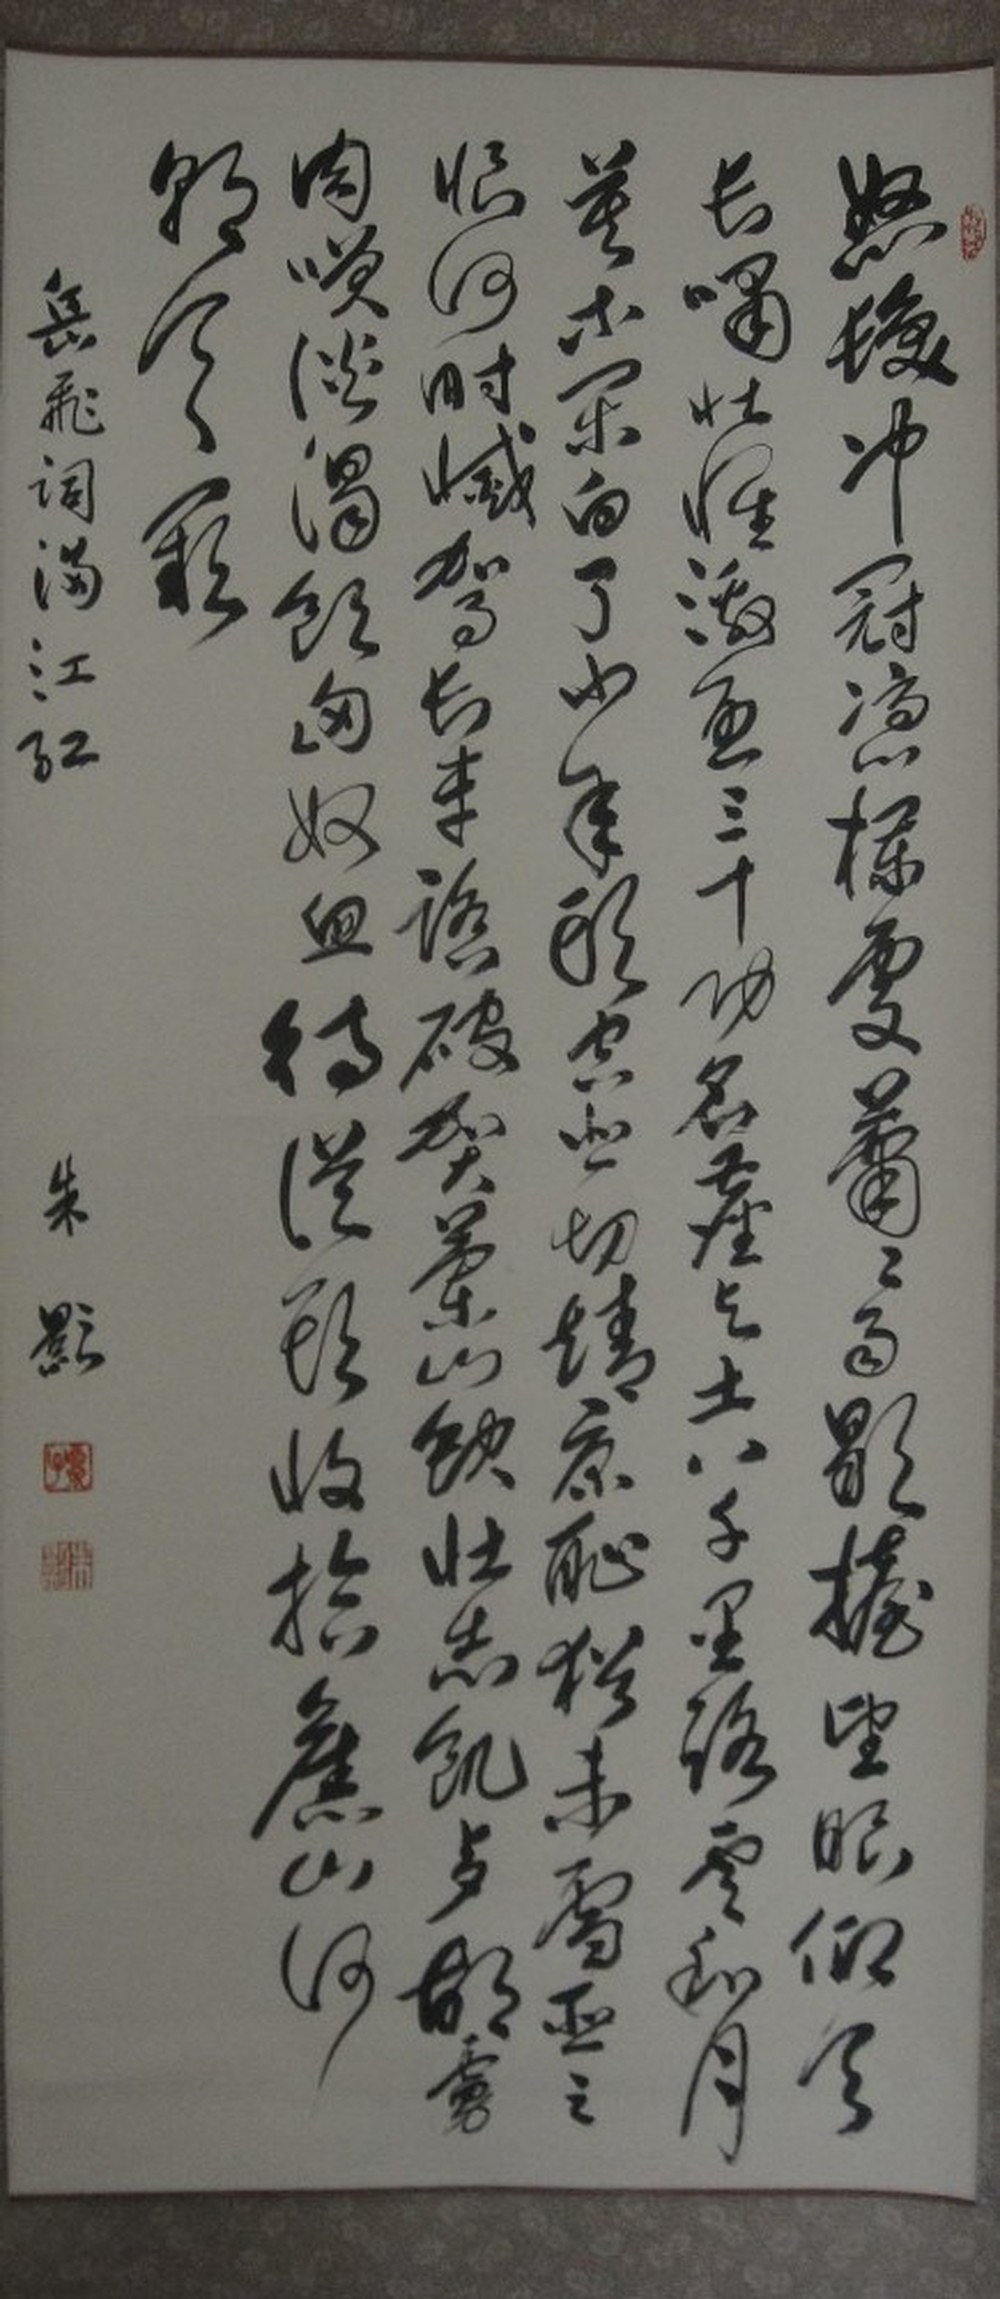 怒髮冲冠憑欄處蕭々雨歇擡望眼仰天
长嘯壮懷激烈三十功名塵与土八千里路雲和月
莫等閑白了少年頭空悲切靖康恥猶未雪臣子
恨何时滅駕长車踏破賀蘭山缺壮志飢餐胡虜
肉笑談渴飲匈奴血待從頭收拾舊山河
朝天闕
岳飛詞满江红
朱影